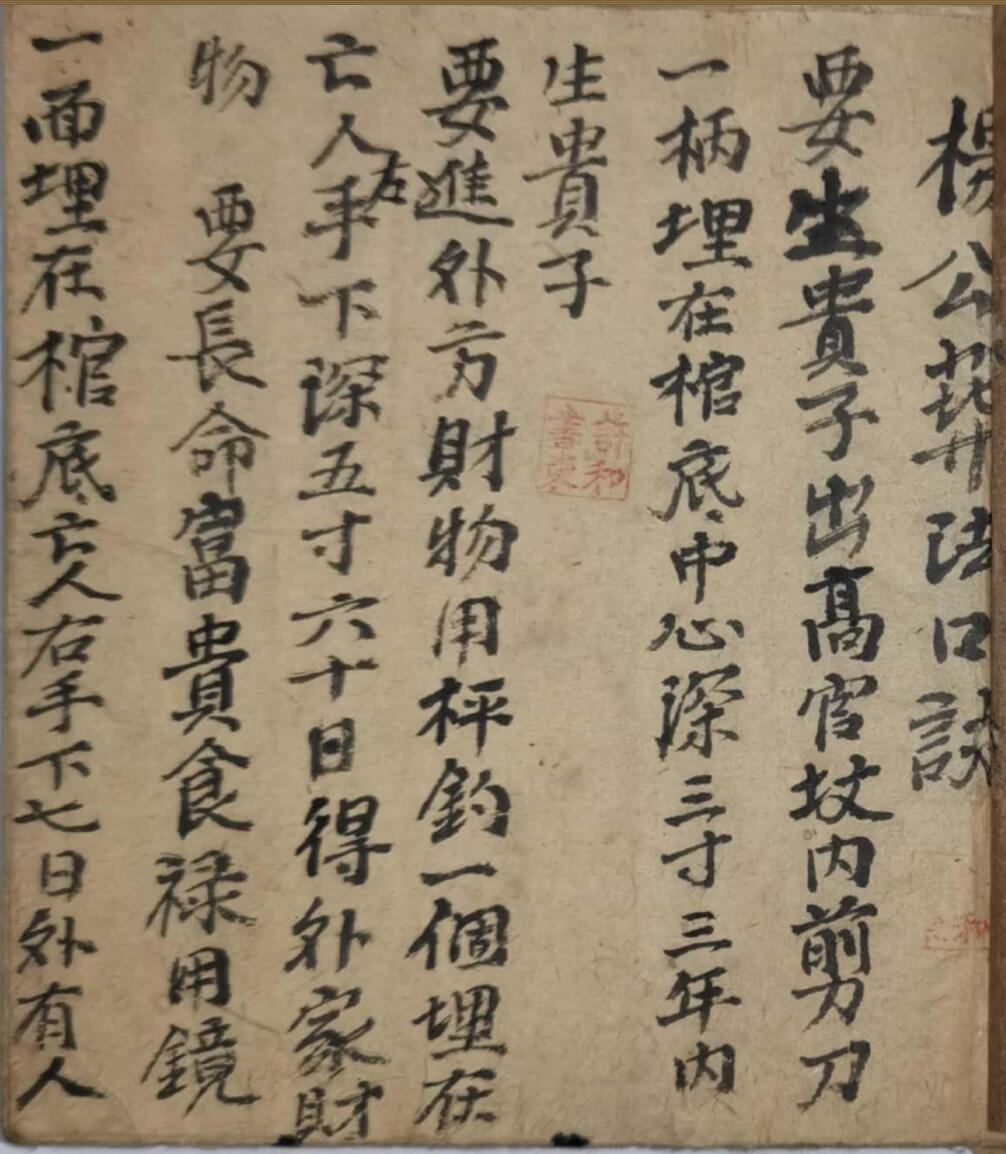 楊公葬法口訣
要生貴子出高官坟内剪刀
一柄埋在棺底中心深三寸三年内
生貴子
要進外方財物用枰鈎一個埋在
亡人左手下深五寸六十日得外家財
物　要長命富貴食禄用鏡
一面埋在棺底亡人右手下七日外有人